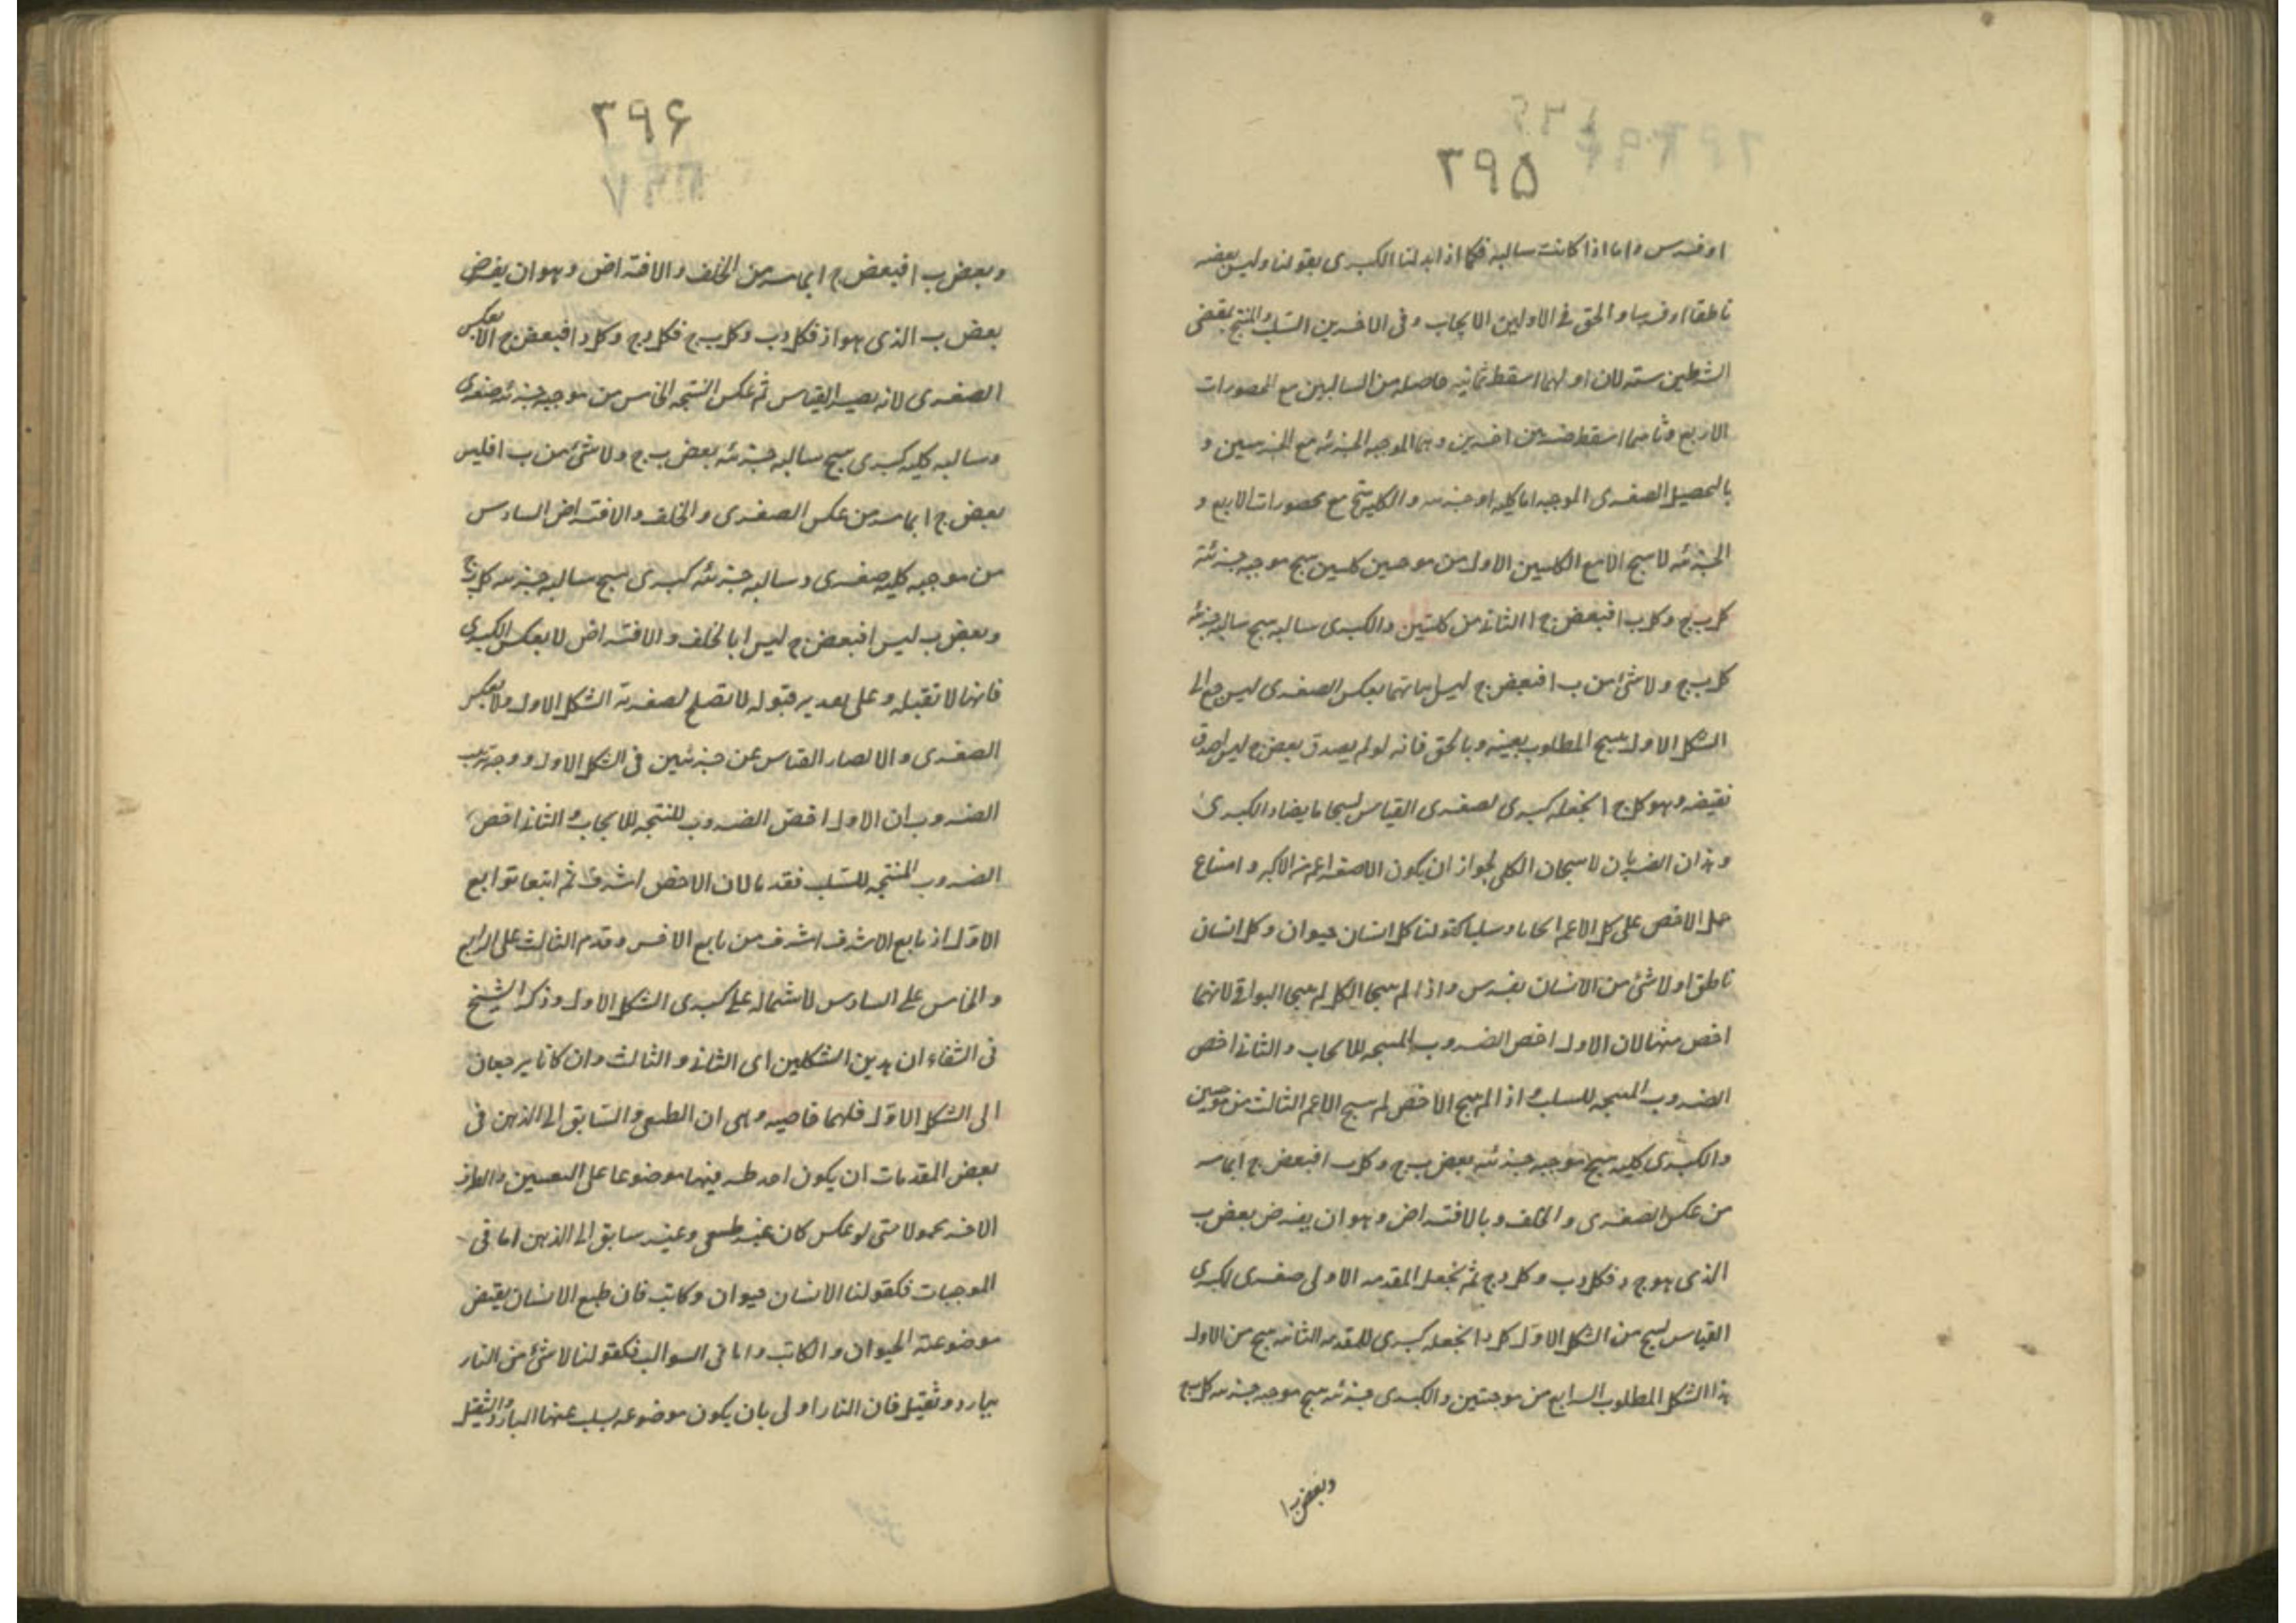 ٣٩۵
او فرس واما اذا كانت سالبه فكما اذا بدلنا الكبرى بقولنا وليس بعضه
ناطقا او فرسا والحق فى الاولين الايجاب وفى الاخرين السلب والمنتج بمقتضى
الشرطين سته لان اولهما اسقط ثمانيه حاصله من السالبين مع المحصورات
الاربع وثانيهما اسقط ضربين اخرين وهما الموجبه الجزئيه مع الجزئيين و
بالتحصيل الصغرى الموجبه اما كليه او جزئيه والكليه تنتج مع محصورات الاربع و
الجزئيه لا ينتج الا مع الكليتين الاول من موجبتين كليتين ينتج موجبه جزئية
كل ب ج وكل ب ا فبعض ج ا الثانى من كليتين والكبرى سالبه ينتج سالبه جزئية
كل ب ج ولا شئ من ب ا فبعض ج ليس ا بيانهما بعكس الصغرى ليرجع الى
الشكل الاول فينتج المطلوب بعينه وبالخلف فانه لو لم يصدق بعض ج ليس ا صدق
نقيضه وهو كل ج ا نجعله كبرى لصغرى القياس لينتجا ما يضاد الكبرى
وهذان الضربان لا ينتجان الكلى لجواز ان يكون الاصغر اعم من الاكبر وامتناع
حمل الاخص على كل الاعم ايجابا وسلبا كقولنا كل انسان حيوان وكل انسان
ناطق او لا شئ من الانسان بفرس واذا لم ينتجا الكل لم ينتجا البواقى لانهما
اخص منها لان الاول اخص الضروب المنتجه للايجاب والثانى اخص
الضروب المنتجه للسلب واذا لم ينتج الاخص لم ينتج الاعم الثالث من موجبتين
والكبرى كليه ينتج موجبه جزئيه بعض ب ج وكل ب ا فبعض ج ا لما مر
من عكس الصغرى والخلف وبالافتراض وهو ان يفرض بعض ب
الذى هو ج د فكل د ب وكل د ج ثم نجعل المقدمه الاولى صغرى لكبرى
القياس لينتج من الشكل الاول كل د ا نجعله كبرى للمقدمه الثانيه ينتج من الاول
هذا الشكل المطلوب الرابع من موجبتين والكبرى جزئيه ينتج موجبه جزئيه كل ب ج
وبعض ب ا
٣٩۶
وبعض ب ا فبعض ج ا بما مر من الخلف والافتراض وهو ان يفرض
بعض ب الذى هو ا د فكل د ب وكل ب ج فكل د ج وكل د ا فبعض ج ا لا بعكس
الصغرى لانه يصير القياس ثم عكس النتيجه الخامس من موجبه جزئيه صغرى
وسالبه كليه كبرى ينتج سالبه جزئيه بعض ب ج ولا شئ من ب ا فليس
بعض ج ا بما مر من عكس الصغرى والخلف والافتراض السادس
من موجبه كليه صغرى وسالبه جزئيه كبرى ينتج سالبه جزئيه كل ب ج
وبعض ب ليس ا فبعض ج ليس ا بالخلف والافتراض لا بعكس الكبرى
فانها لا تقبله وعلى تقدير قبوله لا تصلح لصغرية الشكل الاول ولا بعكس
الصغرى والا لصار القياس عن جزئيين فى الشكل الاول ووجه ترتيب
الضروب ان الاول اخص الضروب المنتجه للايجاب والثانى اخص
الضروب المنتجه للسلب فقدما لان الاخص اشرف ثم اتبعا توابع
الاول اذ تابع الاشرف اشرف من تابع الاخس وقدم الثالث على الرابع
والخامس على السادس لاشتماله على كبرى الشكل الاول وذكر الشيخ
فى الشفاء ان هذين الشكلين اى الثانى والثالث وان كانا يرجعان
الى الشكل الاول فلهما خاصيه وهى ان الطبعى والسابق الى الذهن فى
بعض المقدمات ان يكون احد طرفيها موضوعا على التعيين والطرف
الاخر محمولا حتى لو عكس كان غير طبيعى وغير سابق الى الذهن اما فى
الموجبات فكقولنا الانسان حيوان وكاتب فان طبع الانسان يقتضى
موضوعية الحيوان والكاتب واما فى السوالب فكقولنا لا شئ من النار
ببارد وثقيل فان النار اولى بان يكون موضوعه يسلب عنها البارد والثقيل